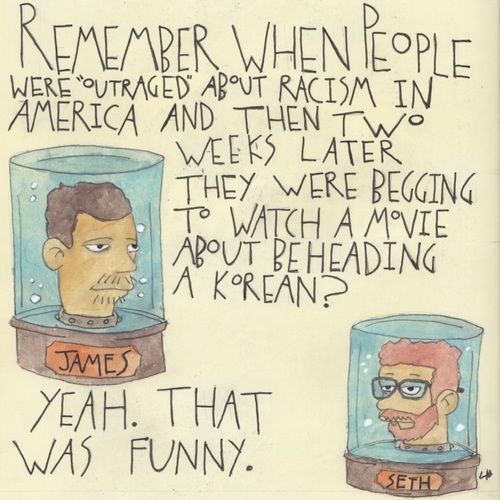 REMEMBER WHEN PEOPLE
WERE "OUTRAGED" ABOUT RACISM IN
AMERICA AND THEN TWO
WEEKS LATER
THEY WERE BEGGING
TO WATCH A MOVIE
ABOUT BEHEADING
A KOREAN?
JAMES
YEAH. THAT
WAS FUNNY.
SETH